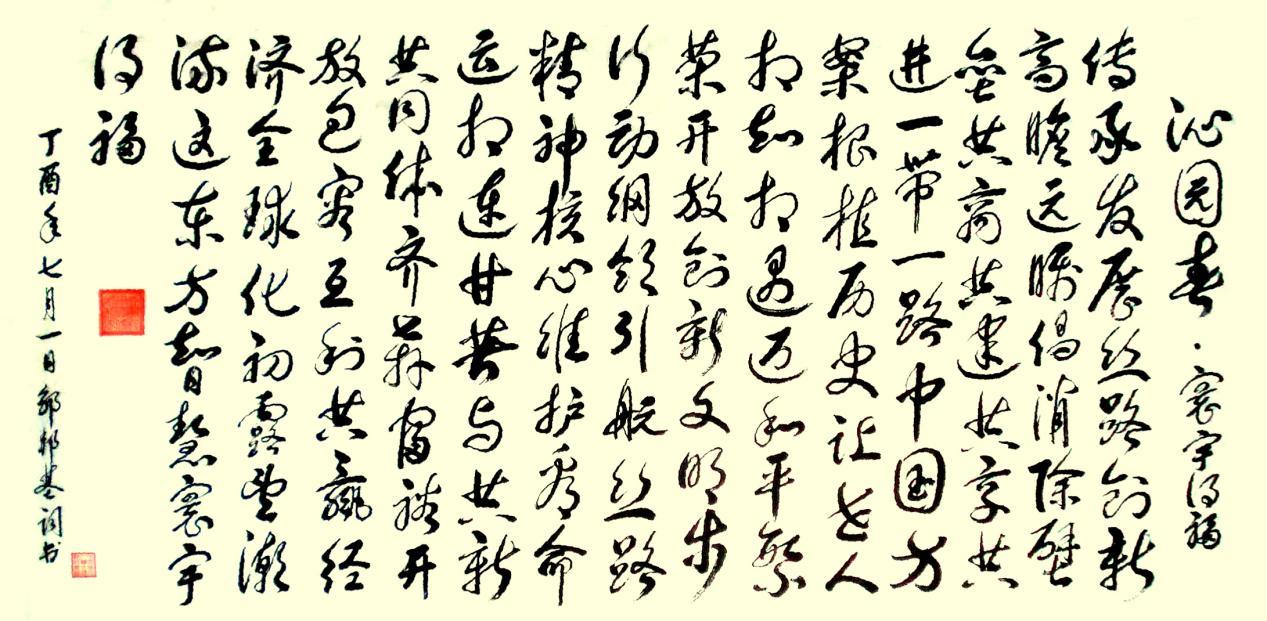 沁园春·寰宇得福
传承发展丝路创新
高瞻远瞩倡消除壁
垒共商共建共享共
进一带一路中国方
案根植历史让世人
相知相遇迈和平繁
荣开放创新文明步
行动纲领引航丝路
精神核心维护为命
运相连甘苦与共新
共同体齐奔富裕开
放包容互利共赢经
济全球化初露潮
流这东方智慧寰宇
得福
丁酉年七月一日邦基词书